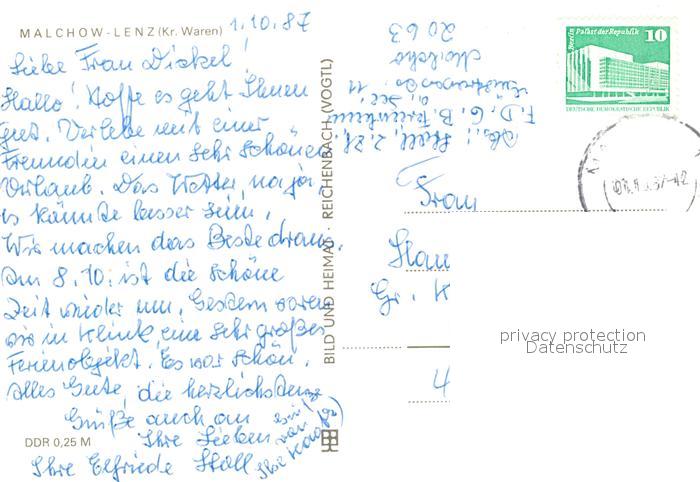 MALCHOW-LENZ (Kr. Waren) 1.10.87
Liebe Frau Dickel!
Hallo! Hoffe es geht Ihnen
gut. Verlebe mit einer
Freundin einen sehr schönen
Urlaub. Das Wetter, na ja,
es könnte besser sein.
Wir machen das Beste draus.
Am 8.10. ist die schöne
Zeit wieder um. Gestern waren
wir in Klink, ein sehr großes
Ferienobjekt. Es war schön.
Alles Gute, die herzlichsten
Grüße auch an
Ihre Lieben
Ihre Elfriede Stoll
DDR 0,25 M
BILD UND HEIMAT · REICHENBACH (VOGTL)
Abs.: Stoll, z. Zt.
F.D.G.B.
2063
Frau
4
Berlin Palast der Republik 10
DEUTSCHE DEMOKRATISCHE REPUBLIK
privacy protection
Datenschutz